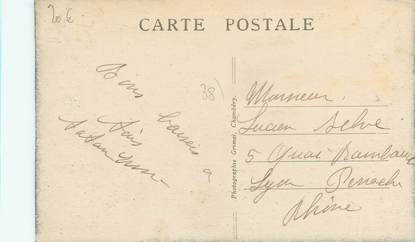 20 €
CARTE POSTALE
38)
Bons baisers à
tous
Photographie Grimal, Chambéry.
Monsieur
Lucien Selve
5 Quai Rambaud
Lyon Perrache
Rhône